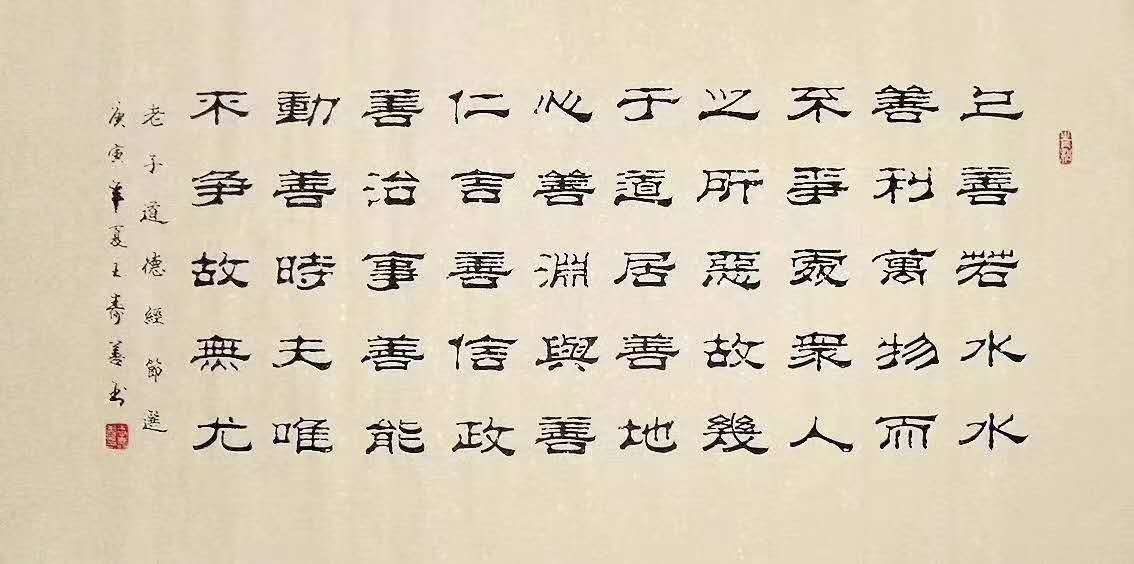 上善若水水
善利萬物而
不爭處衆人
之所惡故幾
于道居善地
心善淵與善
仁言善信政
善治事善能
動善時夫唯
不争故無尤
老子道德經節選
庚寅年夏王壽善书